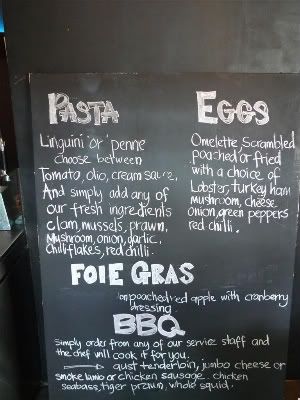 PASTA
Linguini 'or' penne
choose between
Tomato, olio, cream sauce,
And simply add any of
our fresh ingredients
clam, mussels, prawn,
Mushroom, onion, garlic,
chilli flakes, red chilli.
EGGS
Omelette, Scrambled
poached or fried
with a choice of
Lobster, turkey ham
mushroom, cheese
onion, green peppers
red chilli.
FOIE GRAS
apple with cranberry
dressing.
BBQ
Simply order from any of our service staff and
the chef will cook it for you.
tenderloin, jumbo cheese or
smoke or chicken sausage, chicken
seabass, tiger prawn, whole squid.